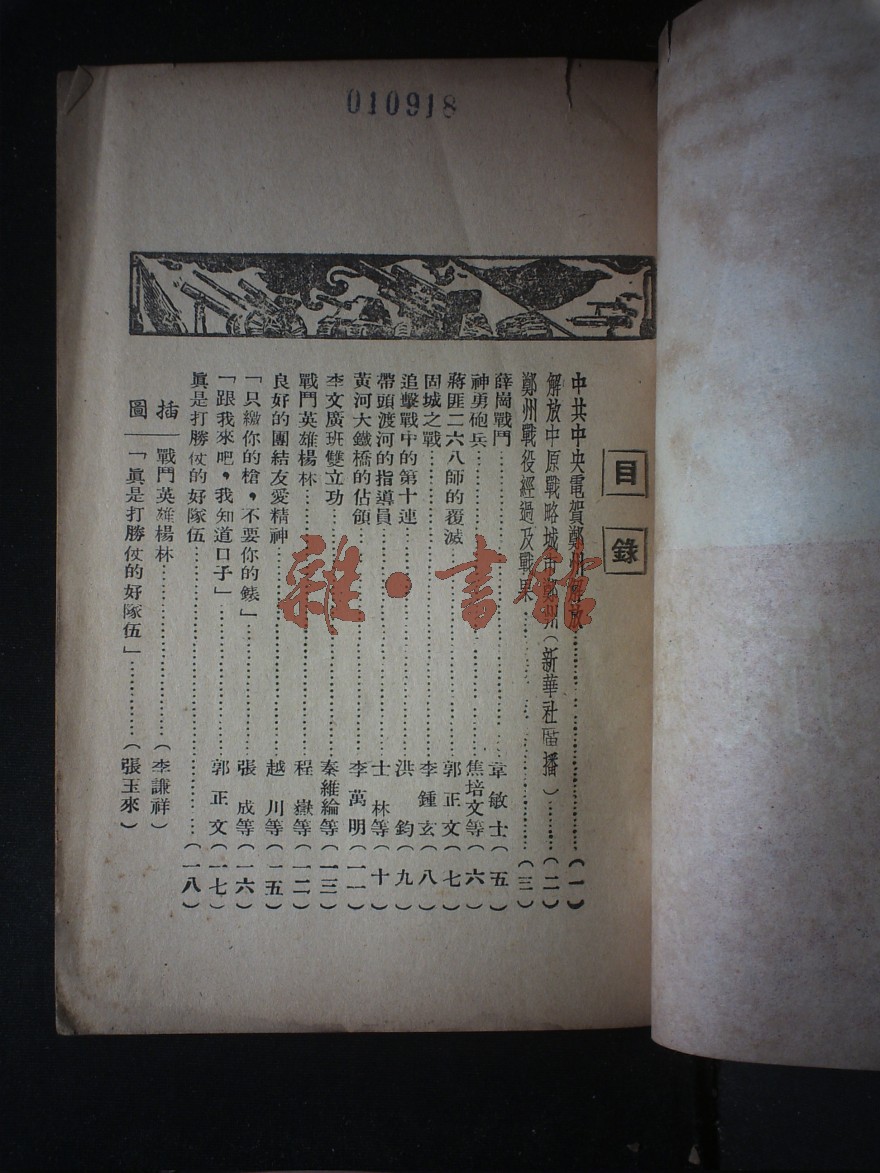 010918
目錄
中共中央電賀鄭州解放……(一)
解放中原戰略城市鄭州(新華社廣播)……(二)
鄭州戰役經過及戰果……(三)
薛崗戰鬥……章敏士(五)
神勇砲兵……焦培文等(六)
蔣匪二六八師的覆滅……郭正文(七)
固城之戰……李鍾玄(八)
追擊戰中的第十連……洪鈞(九)
帶頭渡河的指導員……士林等(十)
黃河大鐵橋的佔領……李萬明(一一)
李文廣班雙立功……秦維綸等(一三)
戰鬥英雄楊林……程嶽等(一二)
良好的團結友愛精神……越川等(一五)
「只繳你的槍,不要你的錶」……張成等(一六)
「跟我來吧,我知道口子」……郭正文(一七)
眞是打勝仗的好隊伍……(一八)
插圖
戰鬥英雄楊林……(李謙祥)
「眞是打勝仗的好隊伍」……(張玉來)
雜·書館